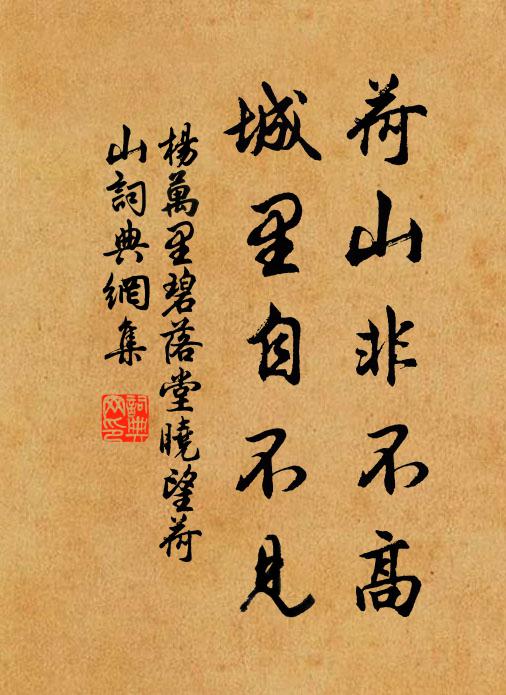 荷山非不高
城里自不見
楊萬里碧落堂曉望荷
山詞典網集
詞典
网印